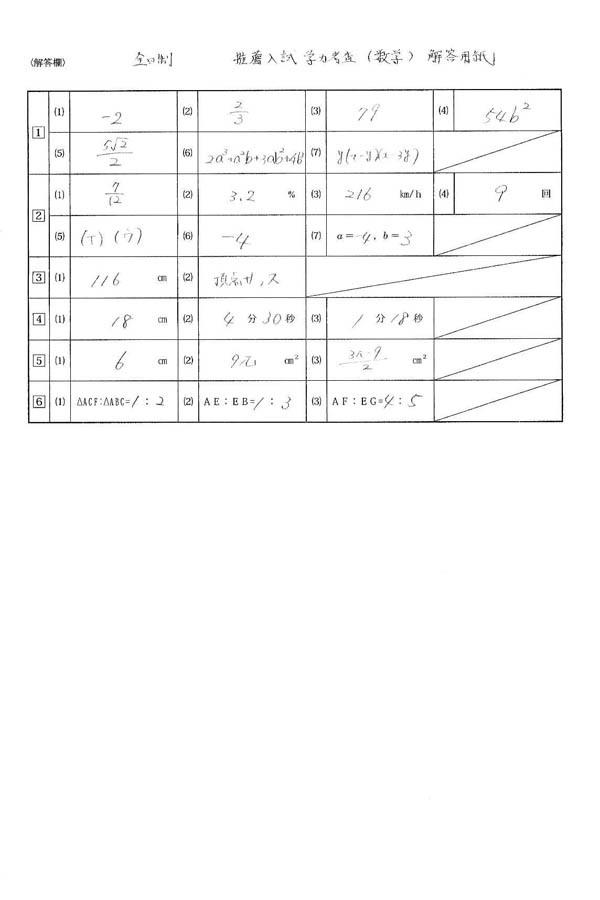 (解答欄) 全日制 推薦入試 学力考査 (数学) 解答用紙」
1 (1) -2 (2) 2/3 (3) 79 (4) 54b²
(5) 5√2/2 (6) 2a³+a²b+3ab²+4b³ (7) y(x-y)(x-3y)
2 (1) 7/12 (2) 3.2 % (3) 216 km/h (4) 9 回
(5) (エ) (ウ) (6) -4 (7) a=-4, b=3
3 (1) 116 cm (2) 頂点サ, ス
4 (1) 18 cm (2) 4 分 30 秒 (3) 1 分 18 秒
5 (1) 6 cm (2) 9π cm² (3) 3π-9/2 cm²
6 (1) △ACF:△ABC=1:2 (2) AE:EB=1:3 (3) AF:EG=4:5